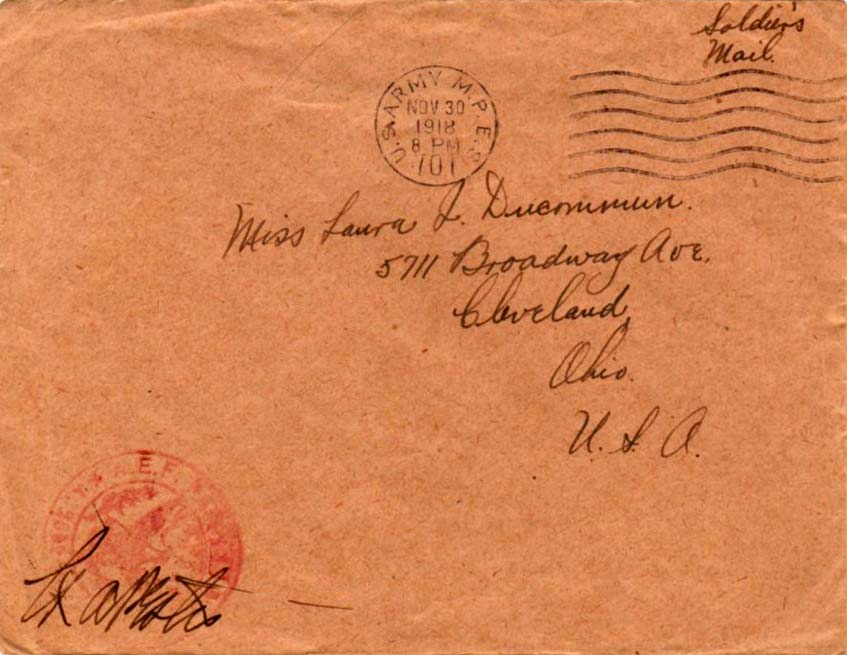 Soldier's
Mail.
U.S. ARMY M.P.E.S.
NOV 30
1918
8 PM
701
Miss Laura L. Ducommun.
5711 Broadway Ave.
Cleveland,
Ohio.
U. S. A.
A.E.F.